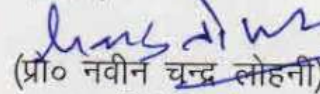 (प्रो० नवीन चन्द्र लोहनी)